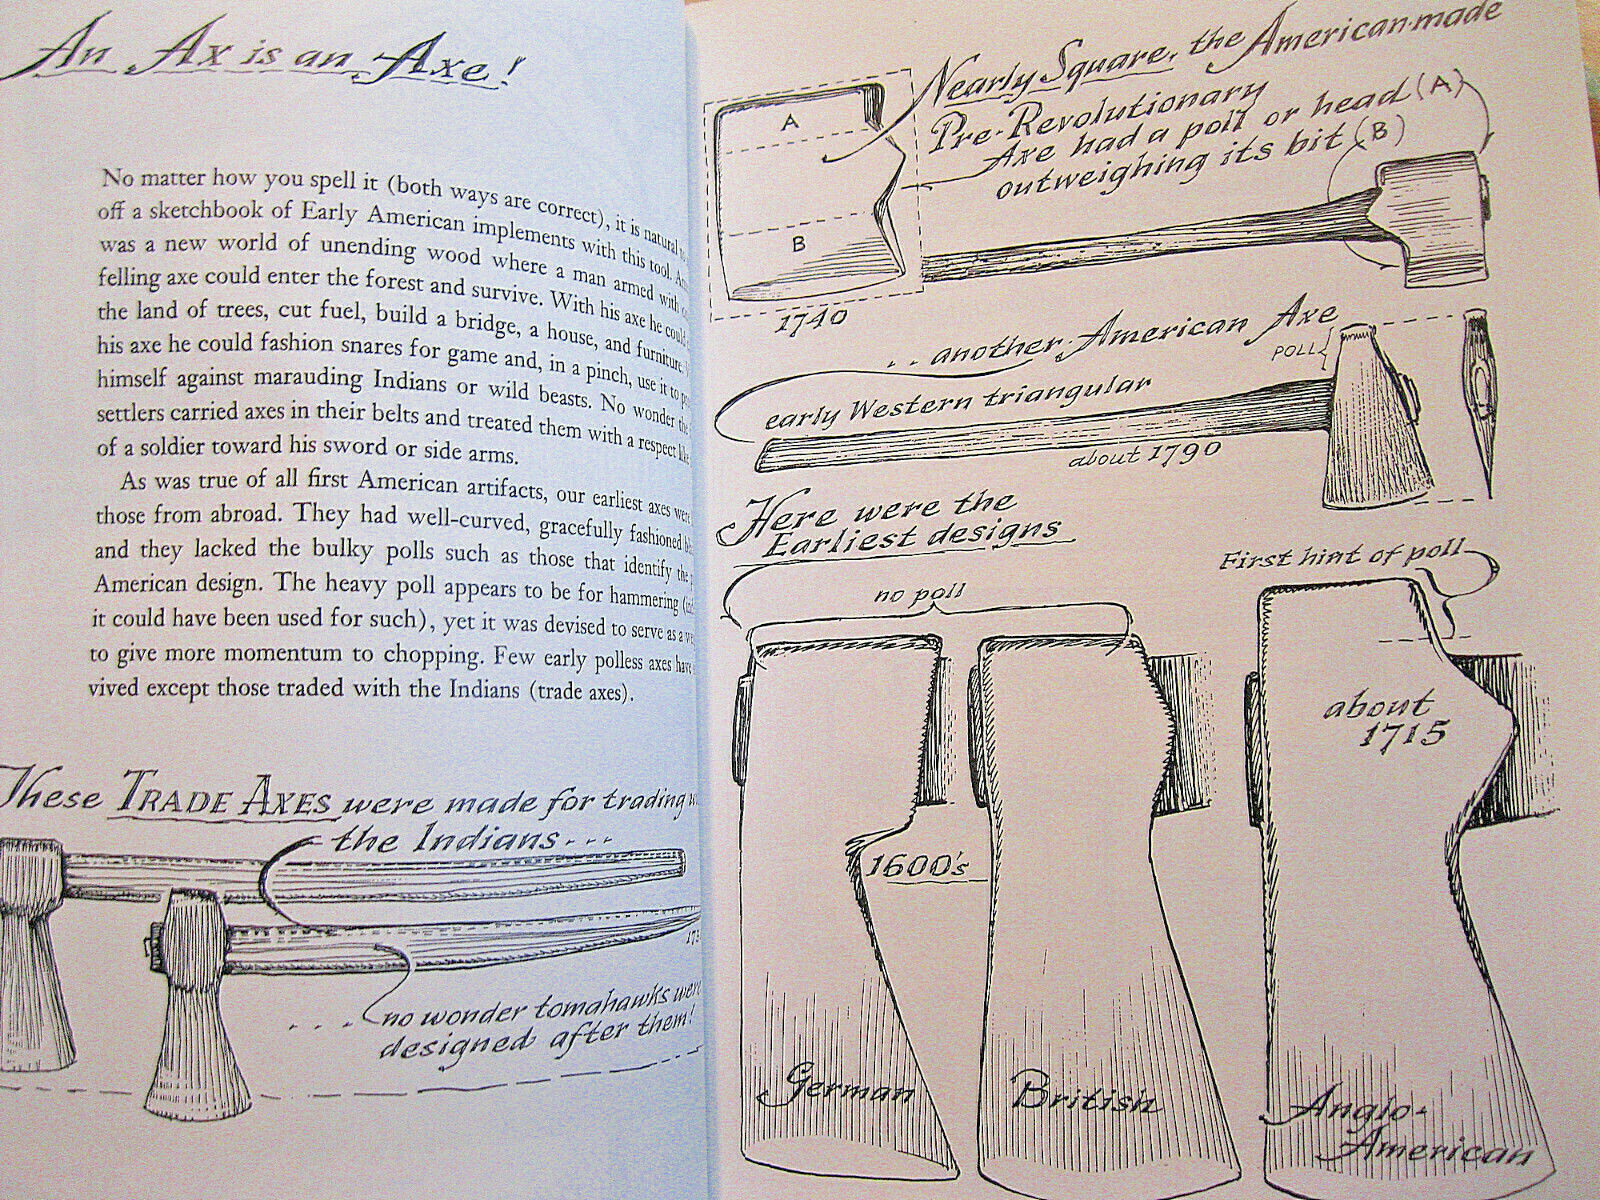 An Ax is an Axe!
No matter how you spell it (both ways are correct), it is natural
off a sketchbook of Early American implements with this tool.
was a new world of unending wood where a man armed with
felling axe could enter the forest and survive. With his axe he could
the land of trees, cut fuel, build a bridge, a house, and furniture.
his axe he could fashion snares for game and, in a pinch, use it to
himself against marauding Indians or wild beasts. No wonder the
settlers carried axes in their belts and treated them with a respect
of a soldier toward his sword or side arms.
As was true of all first American artifacts, our earliest axes were
those from abroad. They had well-curved, gracefully fashioned
and they lacked the bulky polls such as those that identify the
American design. The heavy poll appears to be for hammering
it could have been used for such), yet it was devised to serve as a
to give more momentum to chopping. Few early polless axes have
vived except those traded with the Indians (trade axes).
These TRADE AXES were made for trading
the Indians - - -
. . . . no wonder tomahawks were
designed after them!
Nearly Square, the American-made
Pre-Revolutionary
Axe had a poll or head (A)
outweighing its bit (B)
A
B
1740
. . another American Axe
early Western triangular
POLL
about 1790
Here were the
Earliest designs
no poll
First hint of poll
about
1715
1600's
German
British
Anglo-
American